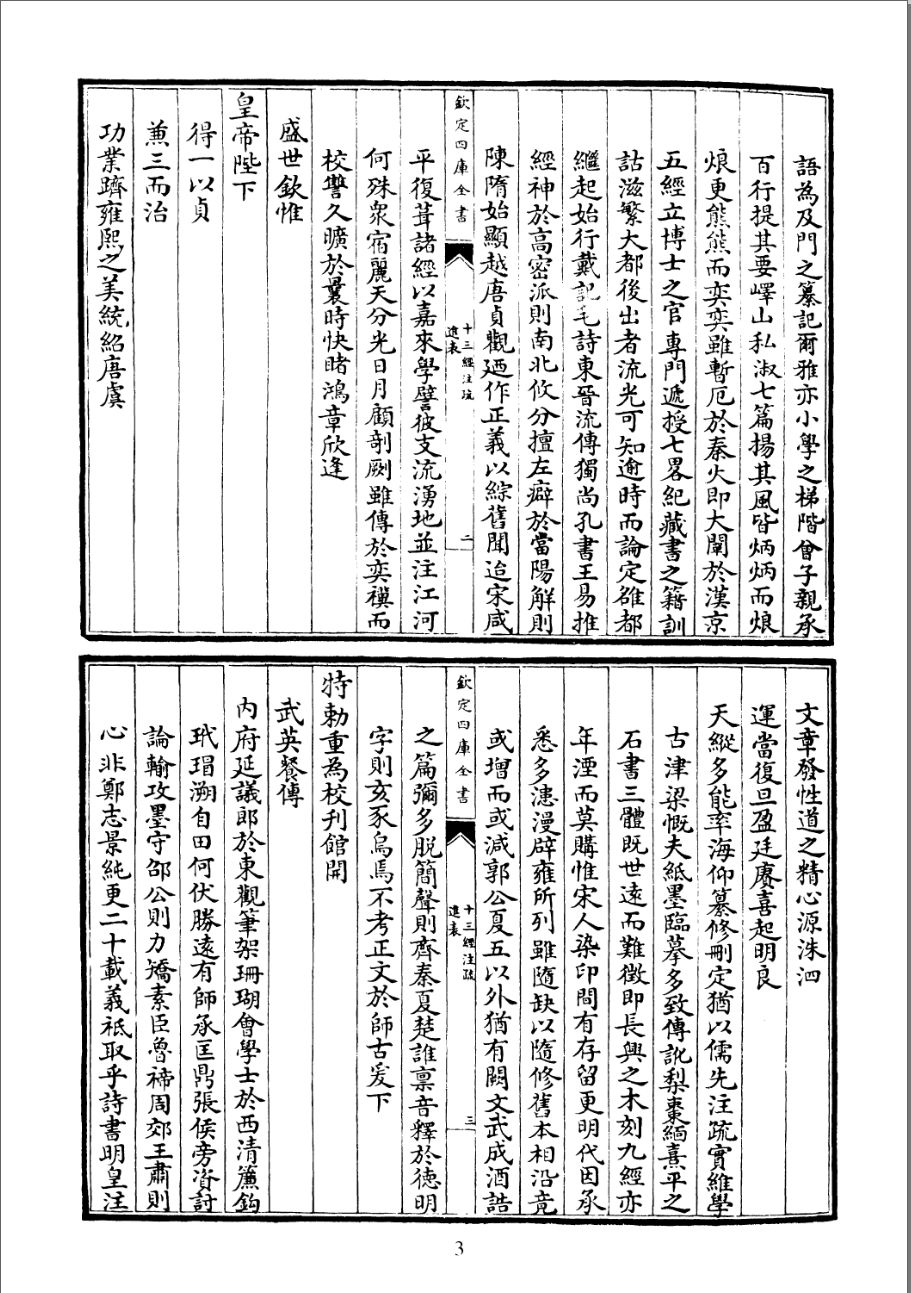 語為及門之纂記爾雅亦小學之梯階曾子親承
百行提其要嶧山私淑七篇揚其風皆炳炳而烺
烺更熊熊而奕奕雖暫厄於秦火即大闡於漢京
五經立博士之官專門遞授七畧紀藏書之籍訓
詁滋繁大都後出者流光可知逾時而論定雒都
繼起始行戴記毛詩東晉流傳獨尚孔書王易推
經神於高密派則南北攸分擅左癖於當陽解則
陳隋始顯越唐貞觀廼作正義以綜舊聞迨宋咸
欽定四庫全書
十三經注疏
進表
二
平復葺諸經以嘉來學譬彼支流湧地並注江河
何殊衆宿麗天分光日月顧剞劂雖傳於奕禩而
校讐久曠於曩時快睹鴻章欣逢
盛世欽惟
皇帝陛下
得一以貞
兼三而治
功業躋雍熙之美統紹唐虞
文章發性道之精心源洙泗
運當復旦盈廷賡喜起明良
天縱多能率海仰纂修刪定猶以儒先注疏實維學
古津梁慨夫紙墨臨摹多致傳訛梨棗緬熹平之
石書三體既世遠而難徵即長興之木刻九經亦
年湮而莫購惟宋人染印間有存留更明代因承
悉多漶漫辟雍所列雖隨缺以隨修舊本相沿竟
或增而或減郭公夏五以外猶有闕文武成酒誥
欽定四庫全書
十三經注疏
進表
三
之篇彌多脫簡聲則齊秦夏楚誰禀音釋於德明
字則亥豕烏焉不考正文於師古爰下
特勅重為校刊館開
武英餐傳
內府延議郎於東觀筆架珊瑚會學士於西清簾鈎
玳瑁溯自田何伏勝遠有師承匡鼎張侯旁資討
論輸攻墨守邵公則力矯素臣魯禘周郊王肅則
心非鄭志景純更二十載義祇取乎詩書明皇注
3